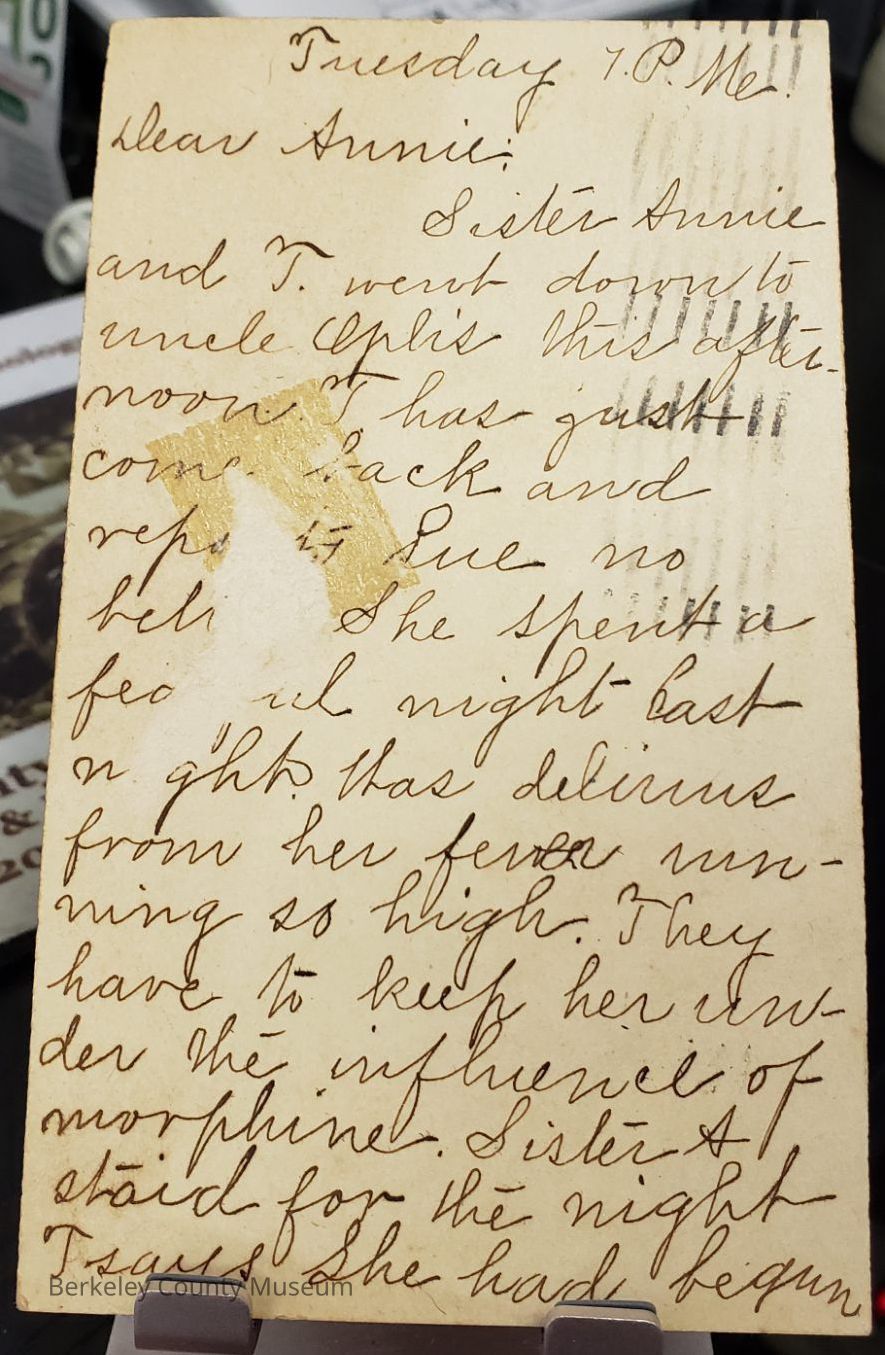 Tuesday 7. P. M.
Dear Annie:
Sister Annie
and T. went down to
uncle this after-
noon. T has just
come back and
Sue no
She spent a
night last
n ght. Was delirius
from her fever run-
ning so high. They
have to keep her un-
der the influence of
morphine. Sister A
staid for the night
T says She had begun
Berkeley County Museum